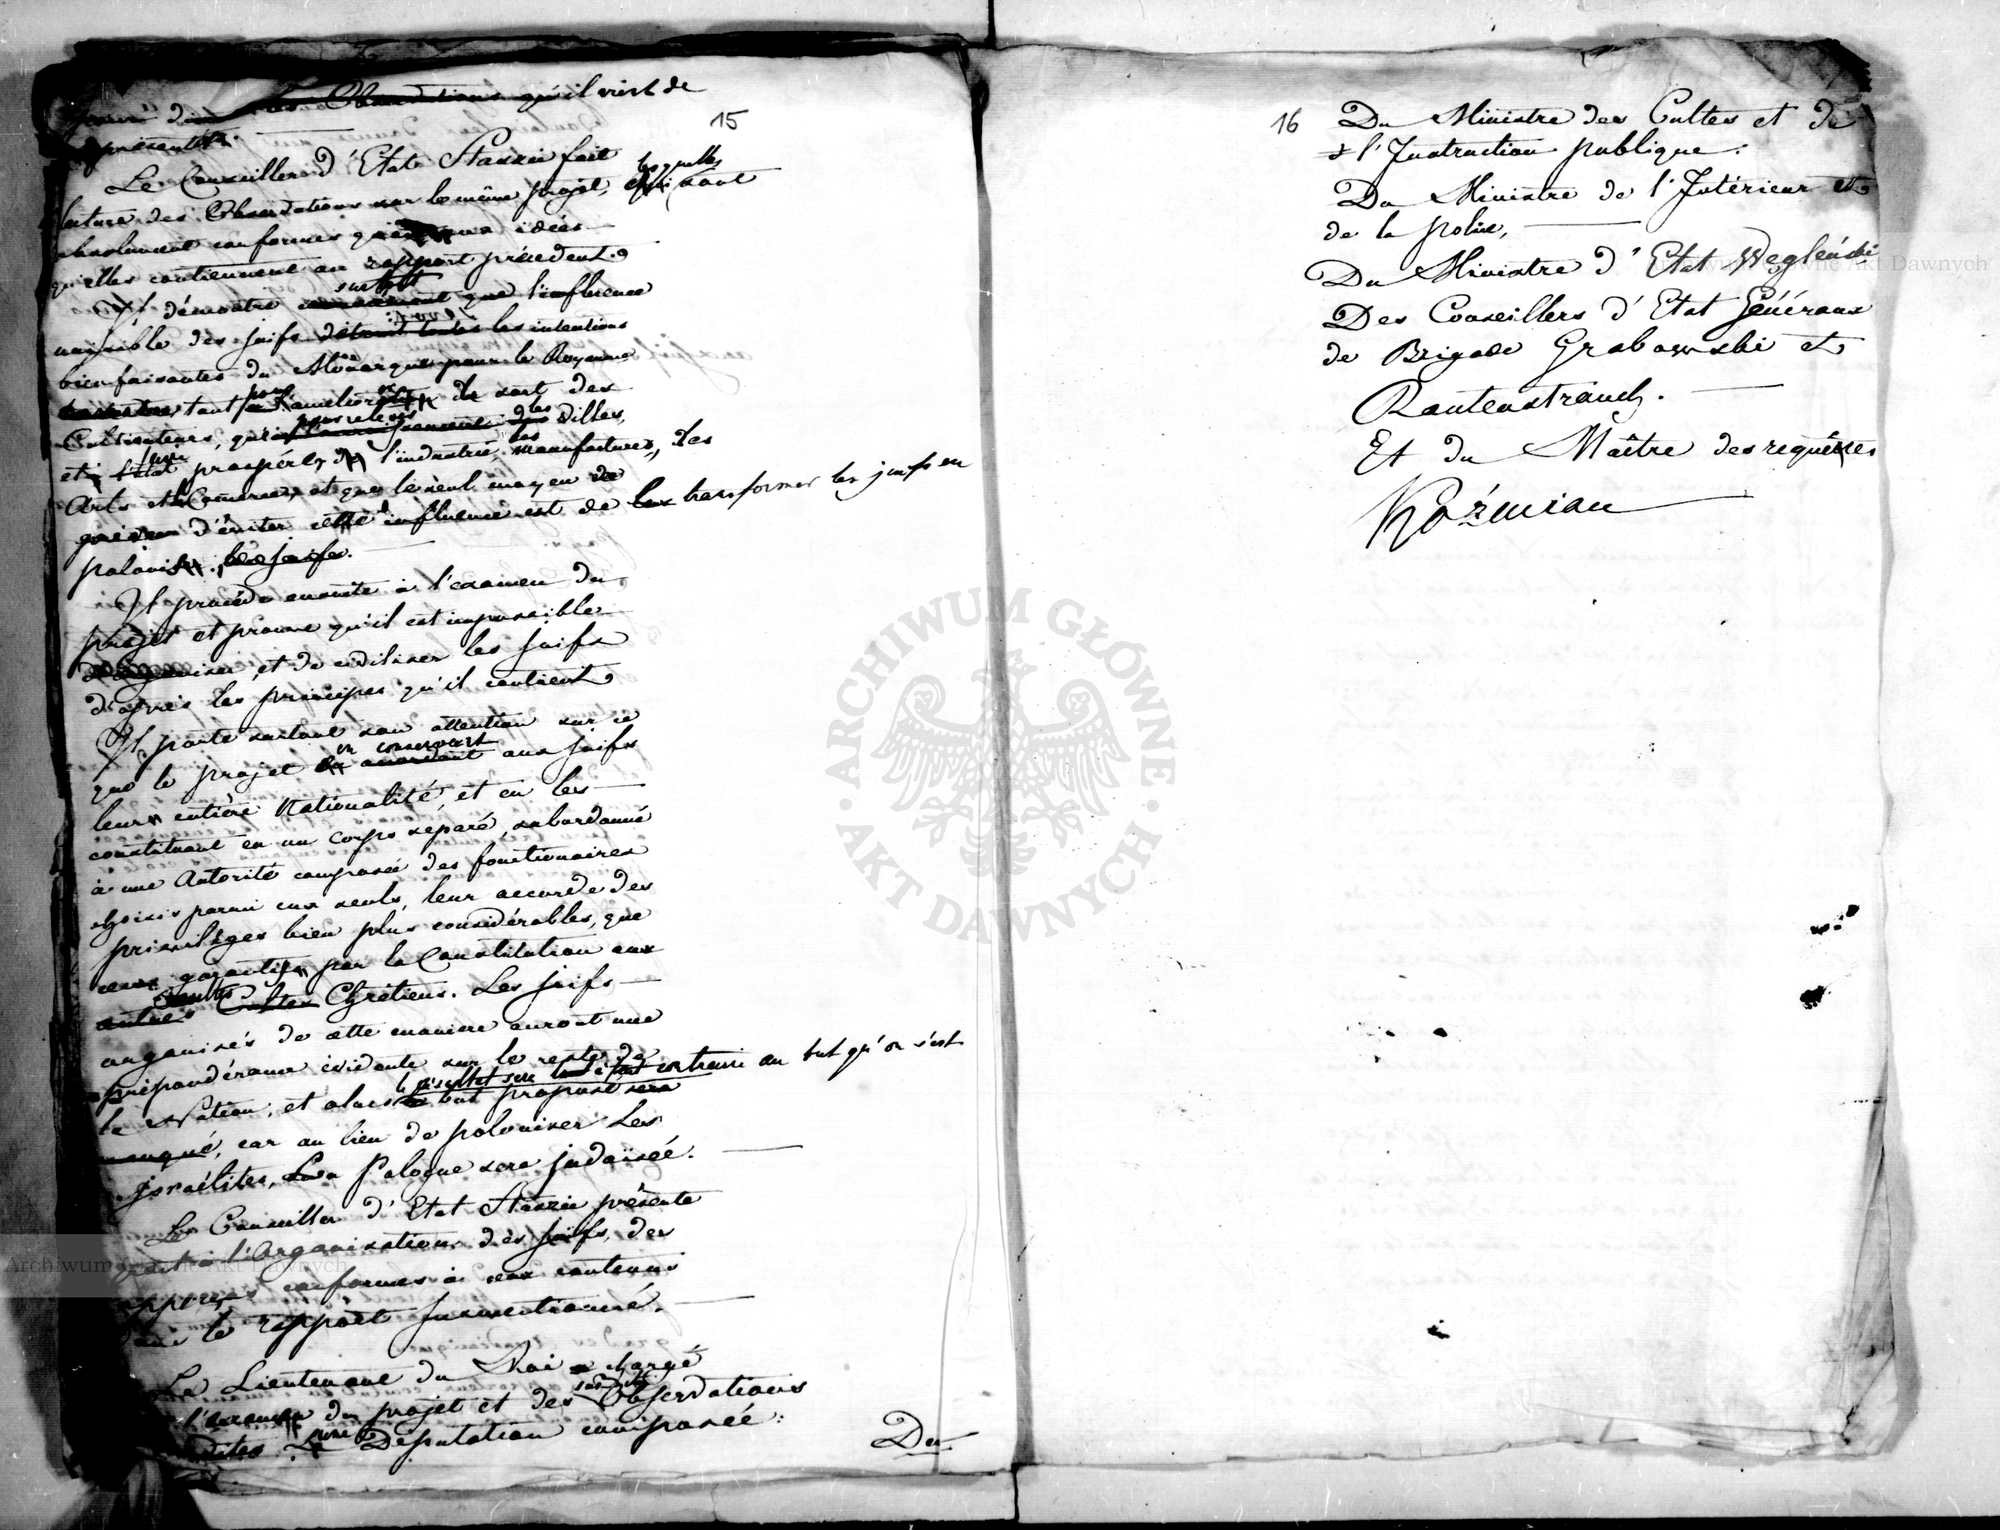 les Observations qu'il vient de
présenter.
15
Le Conseiller d'Etat Staszic fait
lecture des Observations sur le même projet, lesquelles sont
absolument conformes aux idées
qu'elles contiennent au rapport précédent.
Il démontre surtout que l'influence
nuisible des Juifs détruit toutes les intentions
bienfaisantes du Monarque pour le Royaume
tant pour améliorer le sort des
Cultivateurs, que pour relever les Villes,
et faire prospérer l'industrie, les manufactures, les
Arts et le Comerce, et que le seul moyen
d'éviter cette influence est de transformer les juifs en
polonais. les juifs.
Il procède ensuite à l'examen du
projet et prouve qu'il est impossible
d'organiser, et de civiliser les Juifs
d'après les principes qu'il contient
Il porte surtout son attention sur ce
que le projet en conservant aux Juifs
leur entière Nationalité, et en les
constituant en un corps separé, subordonné
à une Autorité composée des fonctionaires
choisis parmi eux seuls, leur accorde des
privilèges bien plus considérables, que
ceux garantis par la Constitution aux
autres Cultes Chrétiens. Les Juifs
organisés de cette maniere auront une
prépondérance évidente sur le reste de
la Nation, et alors le résultat sera tout contraire au but qu'on s'est
but proposé sera
manqué, car au lieu de poloniser les
Israélites, La Pologne sera judaïsée.
Le Conseiller d'Etat Staszic présente
quant à l'Organisation des Juifs, des
conformes à ceux contenus
dans le rapport susmentionné.
Le Lieutenant du Roi a chargé
de l'examen du projet et des Observations
susdites une Députation composée:
Du
16
Du Ministre des Cultes et de
l'Instruction publique.
Du Ministre de l'Intérieur et
de la police,
Du Ministre d'Etat Węgleński
Des Conseillers d'Etat Généraux
de Brigade Grabowski et
Rautenstrauch.
Et du Maître des requêtes
Koźmian
ARCHIWUM GŁÓWNE AKT DAWNYCH
Archiwum Główne Akt Dawnych
Archiwum Główne Akt Dawnych